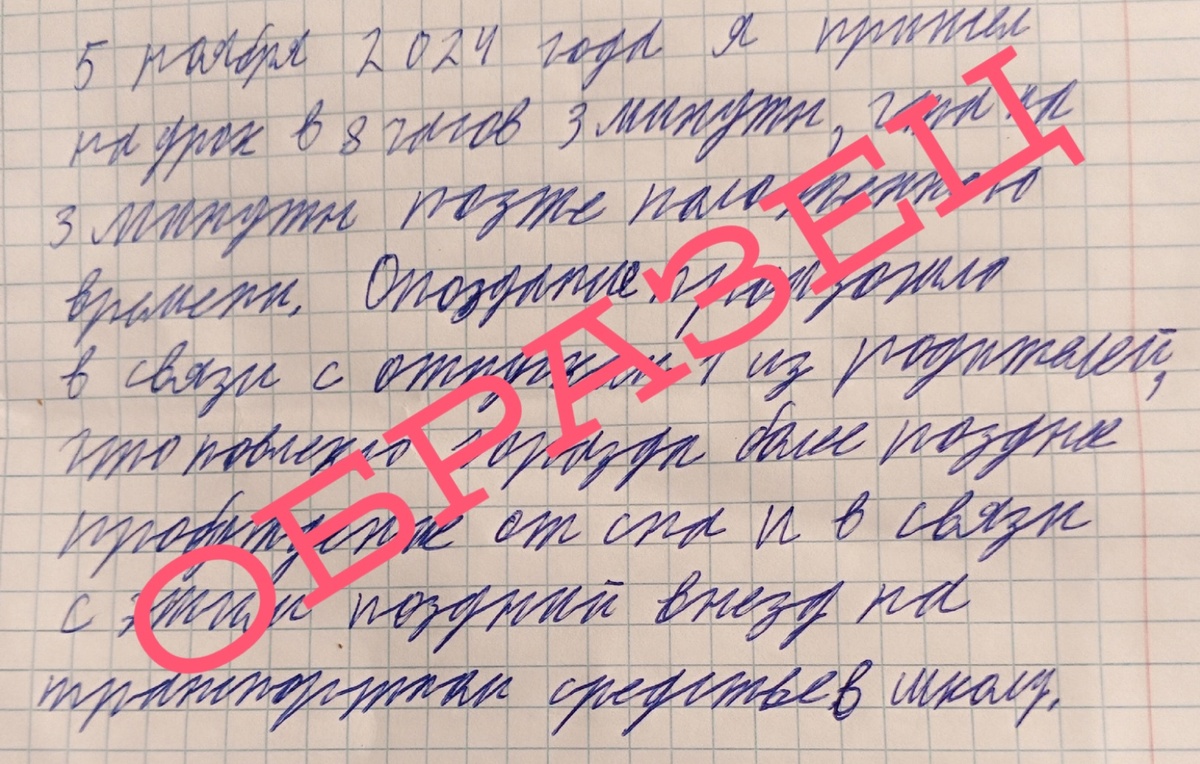 5 ноября 2024 года я пришел
на урок в 8 часов 3 минуты, что на
3 минуты позже положенного
времени. Опоздание произошло
в связи с отпуском 1 из родителей,
что повлекло гораздо более позднее
пробуждение от сна и в связи
с этим поздний выезд на
транспортном средстве в школу.
ОБРАЗЕЦ